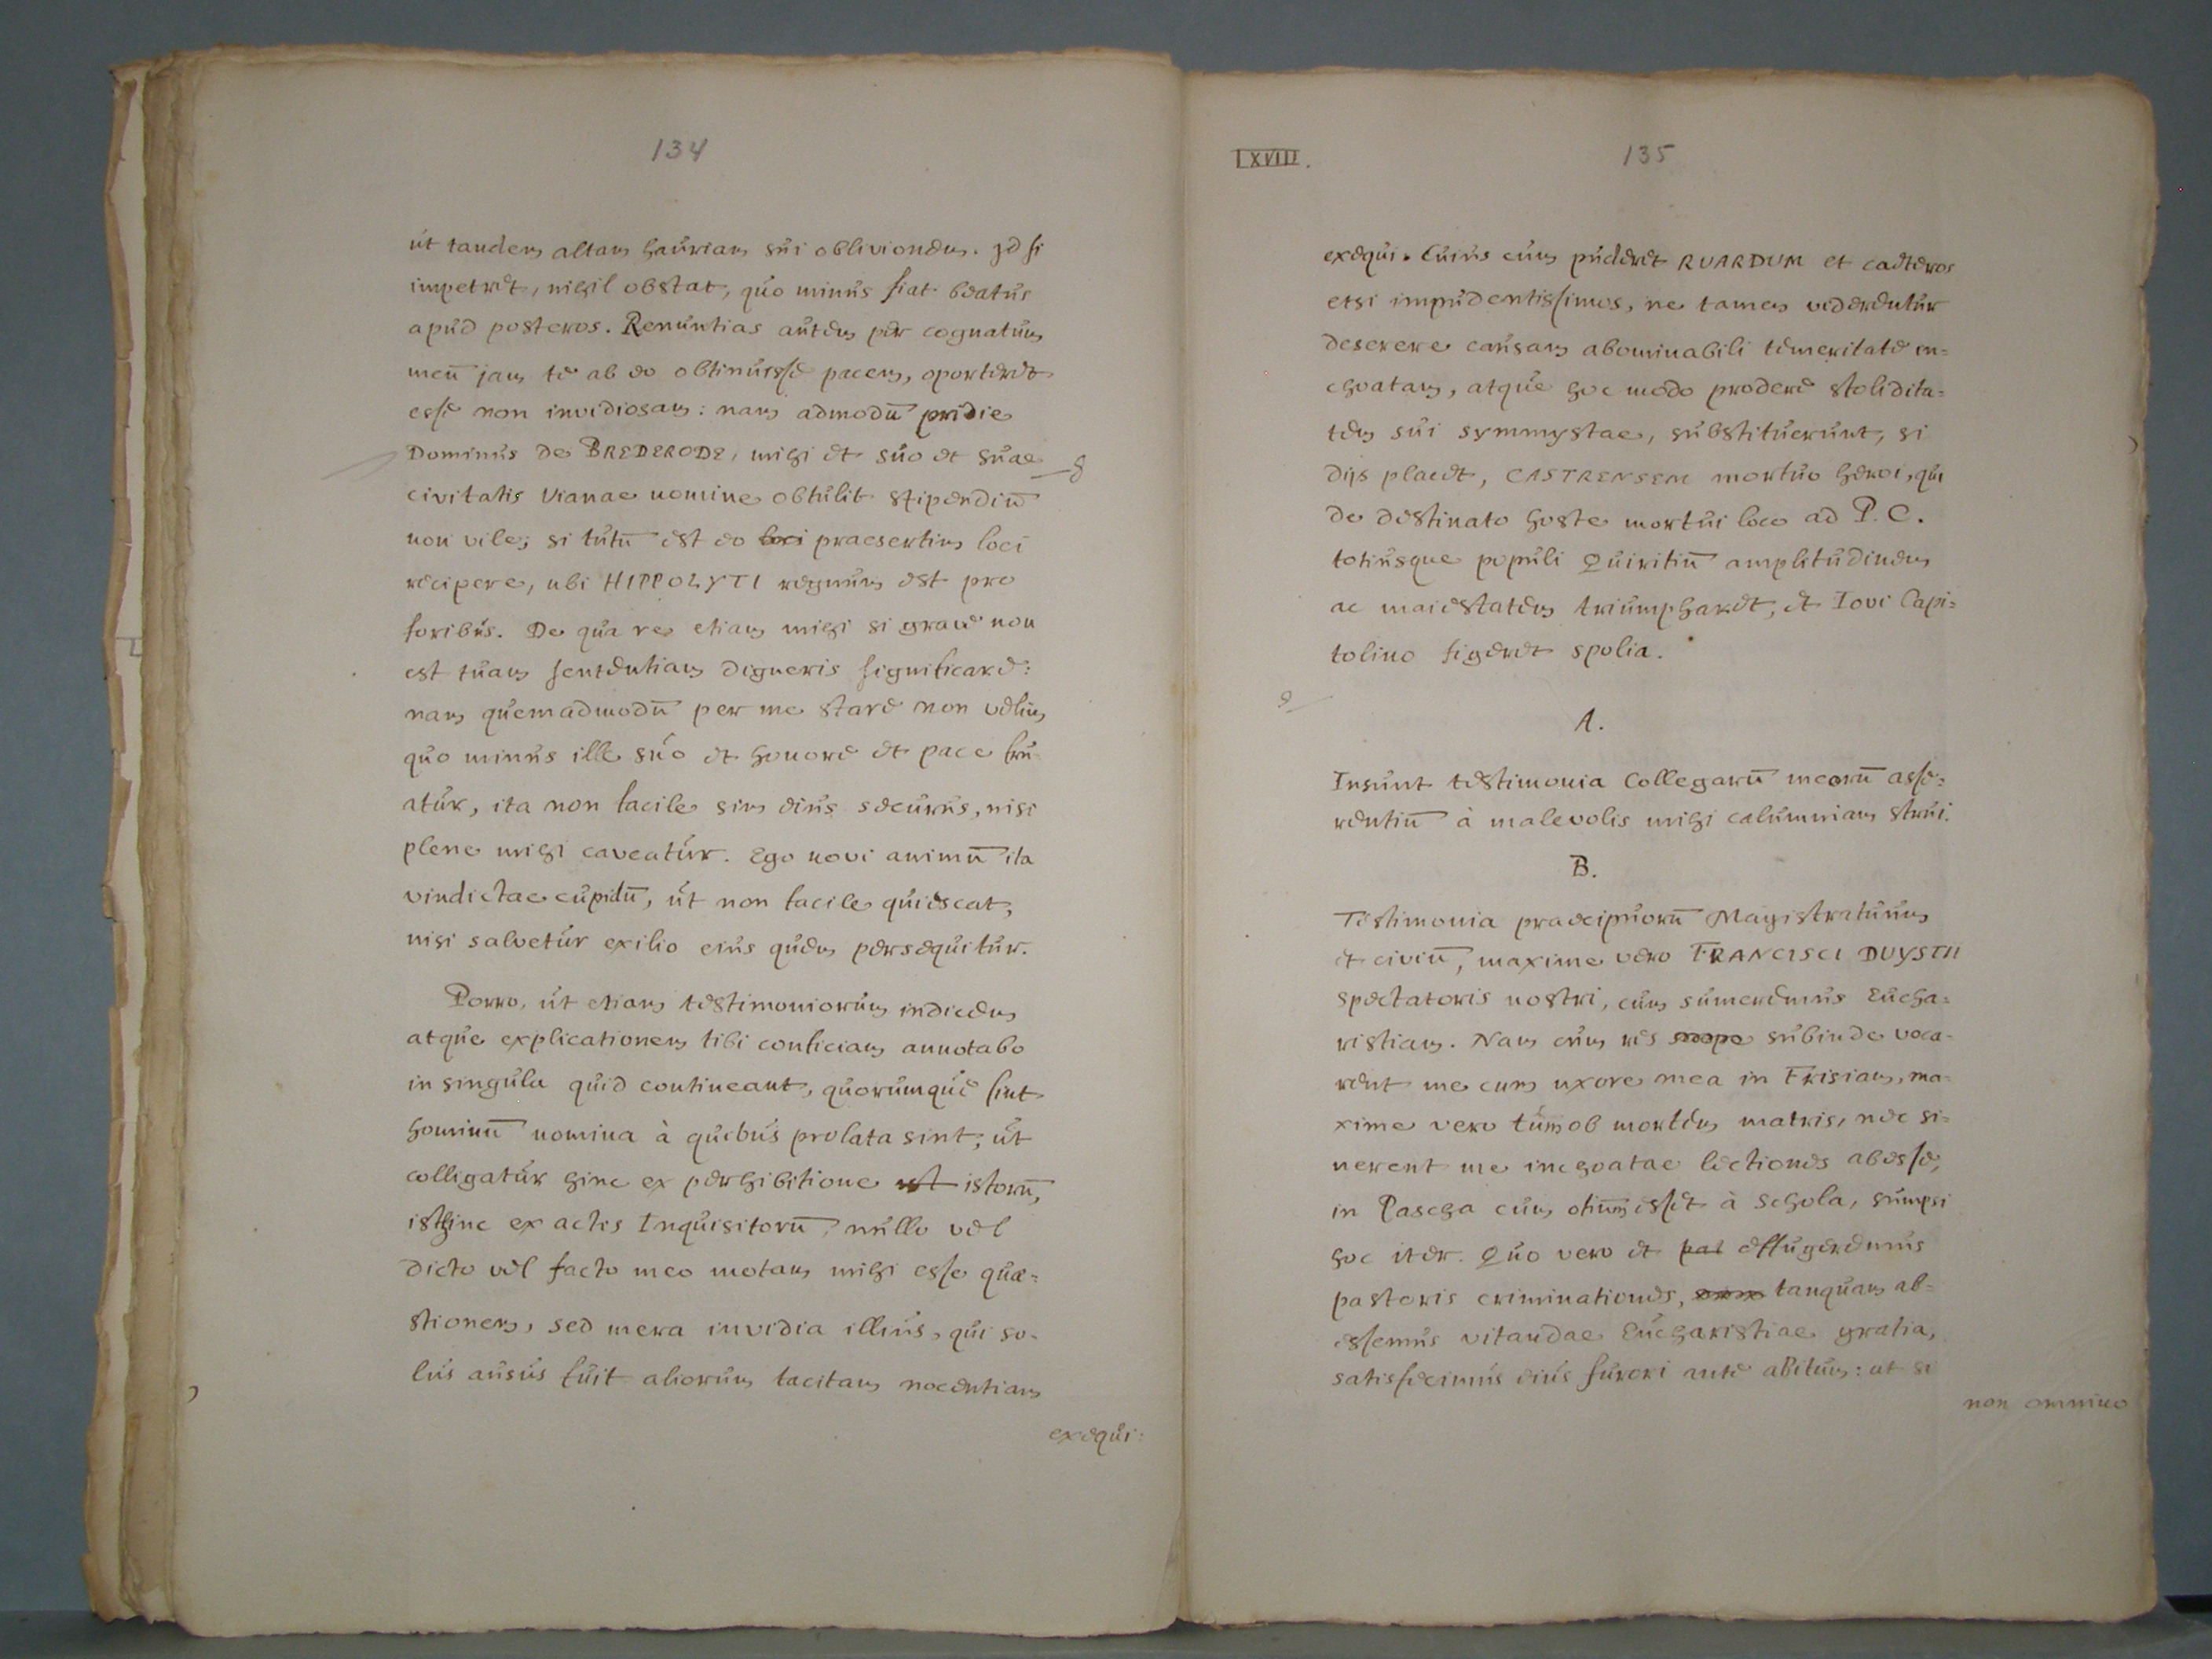 134
ut tandem altam hauriam sui oblivionem. Id si
impetret, nihil obstat, quo minus fiat beatus
apud posteros. Renuntias autem per cognatum
meū jam te ab eo obtinuisse pacem, oporteret
esse non invidiosam: nam admodū pridie
Dominus de BREDERODE, mihi et suo et suae
civitatis Vianae nomine obtulit stipendiū
non vile; si tutū est eo loci praesertim loci
recipere, ubi HIPPOLYTI regnum est pro
foribus. De qua re etiam mihi si grave non
est tuam sententiam digneris significare:
nam quemadmodū per me stare non velim
quo minus ille suo et honore et pace fru-
atur, ita non facile sim eius securus, nisi
plene mihi caveatur. Ego novi animū ita
vindictae cupidū, ut non facile quiescat,
nisi salvetur exilio eius quem persequitur.
Porro, ut etiam testimoniorum indicem
atque explicationem tibi conficiam annotabo
in singula quid contineant, quorumque sint
hominū nomina à quibus prolata sint, ut
colligatur hinc ex perhibitione ut istorū,
isthinc ex actis Inquisitorū, nullo vel
dicto vel facto meo motam mihi esse quae=
stionem, sed mera invidia illius, qui so-
lus ausus fuit aliorum tacitam nocentiam
exequi:
LXVIII.
135
exequi. Cuius cum puderet RUARDUM et caeteros
etsi impudentissimos, ne tamen viderentur
deserere causam abominabili temeritate in=
choatam, atque hoc modo prodere stolidita=
tem sui symmystae, substituerunt, si
dijs placet, CASTRENSEM mortuo heroi, qui
de destinato hoste mortui loco ad P.C.
totiusque populi Quiritiū amplitudinem
ac maiestatem triumpharet, et Iovi Capi=
tolino figeret spolia.
A.
Insunt testimonia Collegarū meorū asse=
rentiū à malevolis mihi calumniam strui.
B.
Testimonia praecipuorū Magistratuum
et civiū, maxime vero FRANCISCI DUYSTII
spectatoris nostri, cum sumeremus Eucha=
ristiam. Nam cum res saepe subinde voca-
rent me cum uxore mea in Frisiam, ma-
xime vero tum ob mortem matris, nec si-
nerent me inchoatae lectiones abesse,
in Pascha cum otium esset à schola, sumpsi
hoc iter. Quo vero et effugeremus
pastoris criminationes, tanquam ab=
essemus vitandae Eucharistiae gratia,
satisfecimus eius furori ante abitum: ut si
non omnino